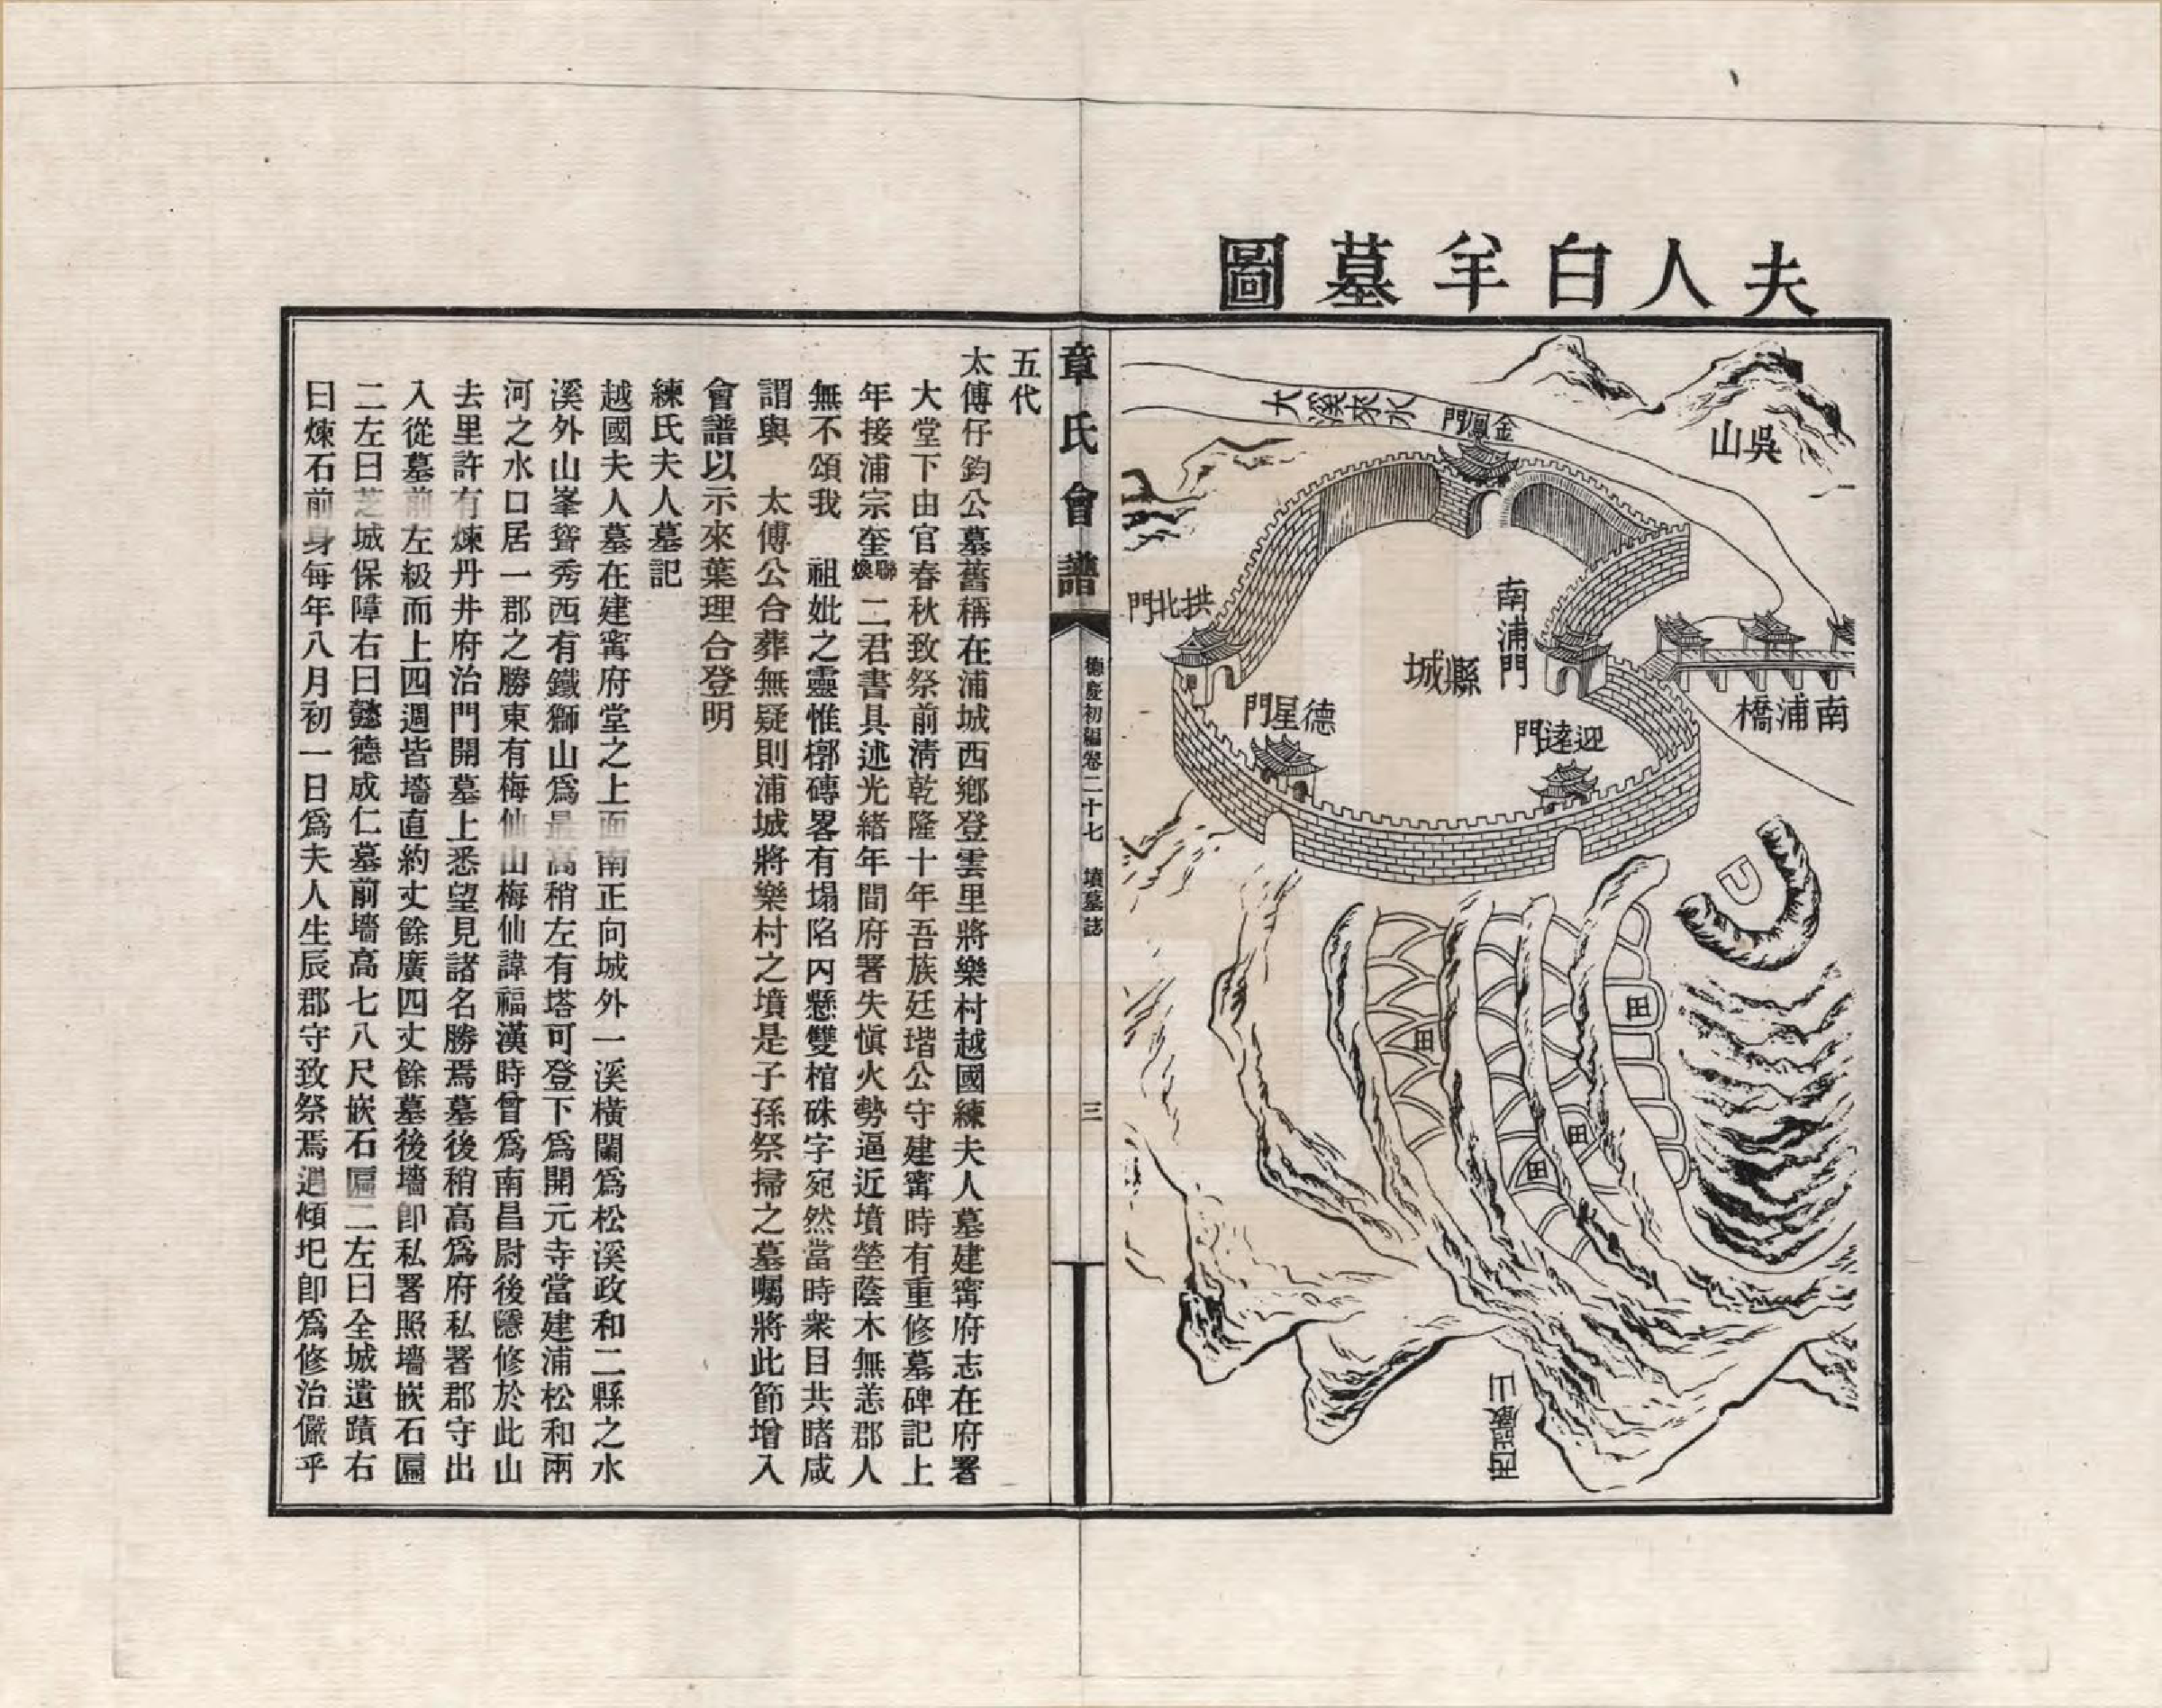 夫人白羊墓圖
吳山
大溪來水
金鳳門
拱北門
南浦門
縣城
德星門
迎遠門
南浦橋
田
田
田
田
西巖山
章氏會譜
德慶初編卷二十七 墳墓誌
三
五代
太傅仔鈞公墓舊稱在浦城西鄉登雲里將樂村越國練夫人墓建寗府志在府署
大堂下由官春秋致祭前清乾隆十年吾族廷瑎公守建寗時有重修墓碑記上
年接浦宗奎聯煥二君書具述光緒年間府署失愼火勢逼近墳塋蔭木無恙郡人
無不頌我 祖妣之靈惟槨磚畧有塌陷內懸雙棺硃字宛然當時衆目共睹咸
謂與 太傅公合葬無疑則浦城將樂村之墳是子孫祭掃之墓囑將此節增入
會譜以示來葉理合登明
練氏夫人墓記
越國夫人墓在建寗府堂之上面南正向城外一溪橫闌爲松溪政和二縣之水
溪外山峯聳秀西有鐵獅山爲最高稍左有塔可登下爲開元寺當建浦松和兩
河之水口居一郡之勝東有梅仙山梅仙諱福漢時曾爲南昌尉後隱修於此山
去里許有煉丹井府治門開墓上悉望見諸名勝焉墓後稍高爲府私署郡守出
入從墓前左級而上四週皆墻直約丈餘廣四丈餘墓後墻卽私署照墻嵌石匾
二左曰芝城保障右曰懿德成仁墓前墻高七八尺嵌石匾二左曰全城遺蹟右
曰煉石前身每年八月初一日爲夫人生辰郡守致祭焉遇傾圯卽爲修治儼乎